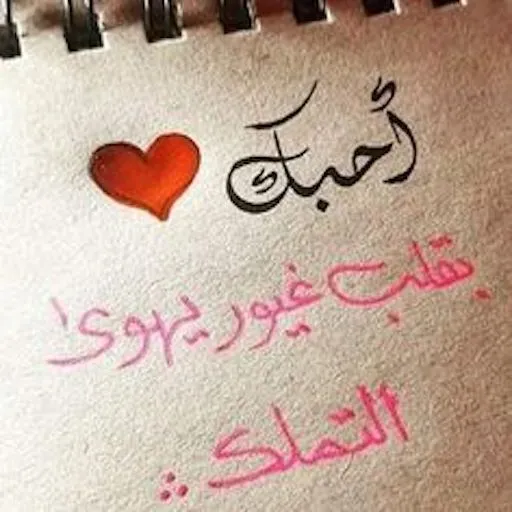 أحبك
بقلب غيور يهوىٰ
التملك